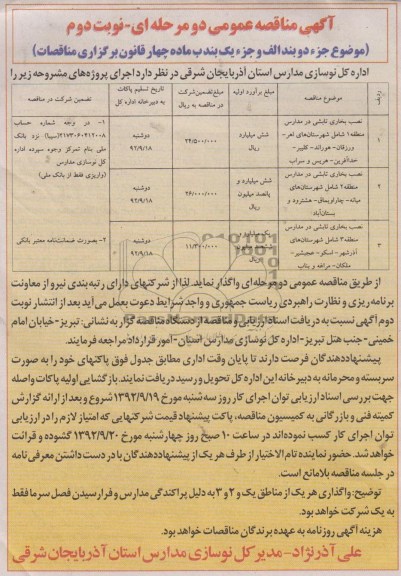 آگهی مناقصه عمومی دو مرحله ای-نوبت دوم
(موضوع جزء دو بند الف و جزء یک بند ب ماده چهار قانون برگزاری مناقصات)
اداره کل نوسازی مدارس استان آذربایجان شرقی در نظر دارد اجرای پروژه‌های مشروحه زیر را
ردیف
موضوع مناقصه
مبلغ برآورد اولیه
مبلغ تضمین شرکت در مناقصه به ریال
تاریخ تسلیم پاکات به دبیرخانه اداره کل
تضمین شرکت در مناقصه
۱
نصب بخاری تابشی در مدارس
منطقه۱ شامل شهرستان‌های اهر-
ورزقان- هوراند- کلیبر-
خداآفرین- هریس و سراب
شش میلیارد
ریال
۲۴/۵۰۰/۰۰۰
دوشنبه
۹۲/۹/۱۸
۱- در وجه شماره حساب
۲۱۷۳۰۶۰۴۱۲۰۰۸(سیبا) نزد بانک
ملی بنام تمرکز وجوه سپرده اداره
کل نوسازی مدارس
(واریزی فقط از بانک ملی)
۲
نصب بخاری تابشی در مدارس
منطقه۲ شامل شهرستان‌های
میانه- چاراویماق- هشترود و
بستان‌آباد
شش میلیارد و
پانصد میلیون
ریال
۲۶/۰۰۰/۰۰۰
دوشنبه
۹۲/۹/۱۸
۳
نصب بخاری تابشی در مدارس
منطقه۳ شامل شهرستان‌های
آذرشهر- اسکو- عجبشیر-
ملکان- مراغه و بناب
۱۱/۳۰۰/۰۰۰
دوشنبه
۹۲/۹/۱۸
۲-بصورت ضمانت‌نامه معتبر بانکی
از طریق مناقصه عمومی دو مرحله ای واگذار نماید. لذا از شرکتهای دارای رتبه بندی نیرو از معاونت
برنامه ریزی و نظارت راهبردی ریاست جمهوری و واجد شرایط دعوت بعمل می آید بعد از انتشار نوبت
دوم آگهی نسبت به دریافت اسناد ارزیابی و مناقصه از دستگاه مناقصه گزار به نشانی: تبریز-خیابان امام
خمینی-جنب هتل تبریز-اداره کل نوسازی مدارس استان-امور قرارداد مراجعه فرمایند.
پیشنهاددهندگان فرصت دارند تا پایان وقت اداری مطابق جدول فوق پاکتهای خود را به صورت
سربسته و محرمانه به دبیرخانه این اداره کل تحویل و رسید دریافت نمایند. بازگشایی اولیه پاکات واصله
جهت بررسی اسناد ارزیابی توان اجرای کار روز سه شنبه مورخ ۱۳۹۲/۹/۱۹ شروع و بعد از ارائه گزارش
کمیته فنی و بازرگانی به کمیسیون مناقصه، پاکت پیشنهاد قیمت شرکتهایی که امتیاز لازم را در ارزیابی
توان اجرای کار کسب نموده‌اند در ساعت ۱۰ صبح روز چهارشنبه مورخ ۱۳۹۲/۹/۲۰ گشوده و قرائت
خواهد شد. حضور نماینده تام الاختیار از طرف هر یک از پیشنهاددهندگان با در دست داشتن معرفی نامه
در جلسه مناقصه بلامانع است.
توضیح: واگذاری هر یک از مناطق یک و ۲ و ۳ به دلیل پراکندگی مدارس و فرارسیدن فصل سرما فقط
به یک شرکت خواهد بود.
هزینه آگهی روزنامه به عهده برندگان مناقصات خواهد بود.
علی آذرنژاد-مدیر کل نوسازی مدارس استان آذربایجان شرقی